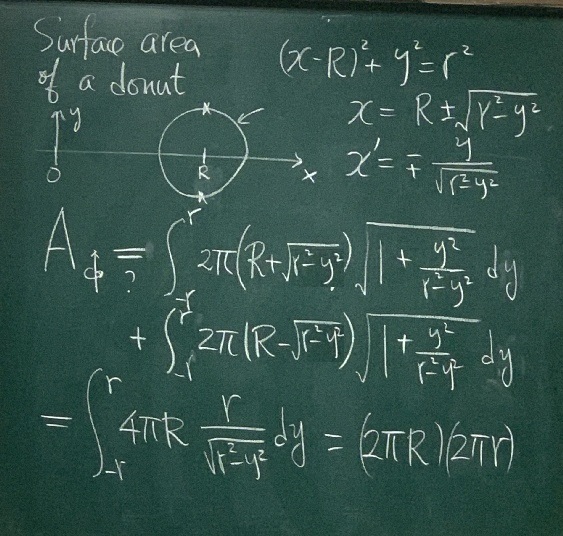 Surface area
of a donut
(x-R)²+y²=r²
x = R±√(r²-y²)
x' = ∓ y/√(r²-y²)
y
0
R
x
A_ϕ =? ∫_{-r}^{r} 2π(R+√(r²-y²))√(1+y²/(r²-y²)) dy
+ ∫_{-r}^{r} 2π(R-√(r²-y²))√(1+y²/(r²-y²)) dy
= ∫_{-r}^{r} 4πR r/√(r²-y²) dy = (2πR)(2πr)